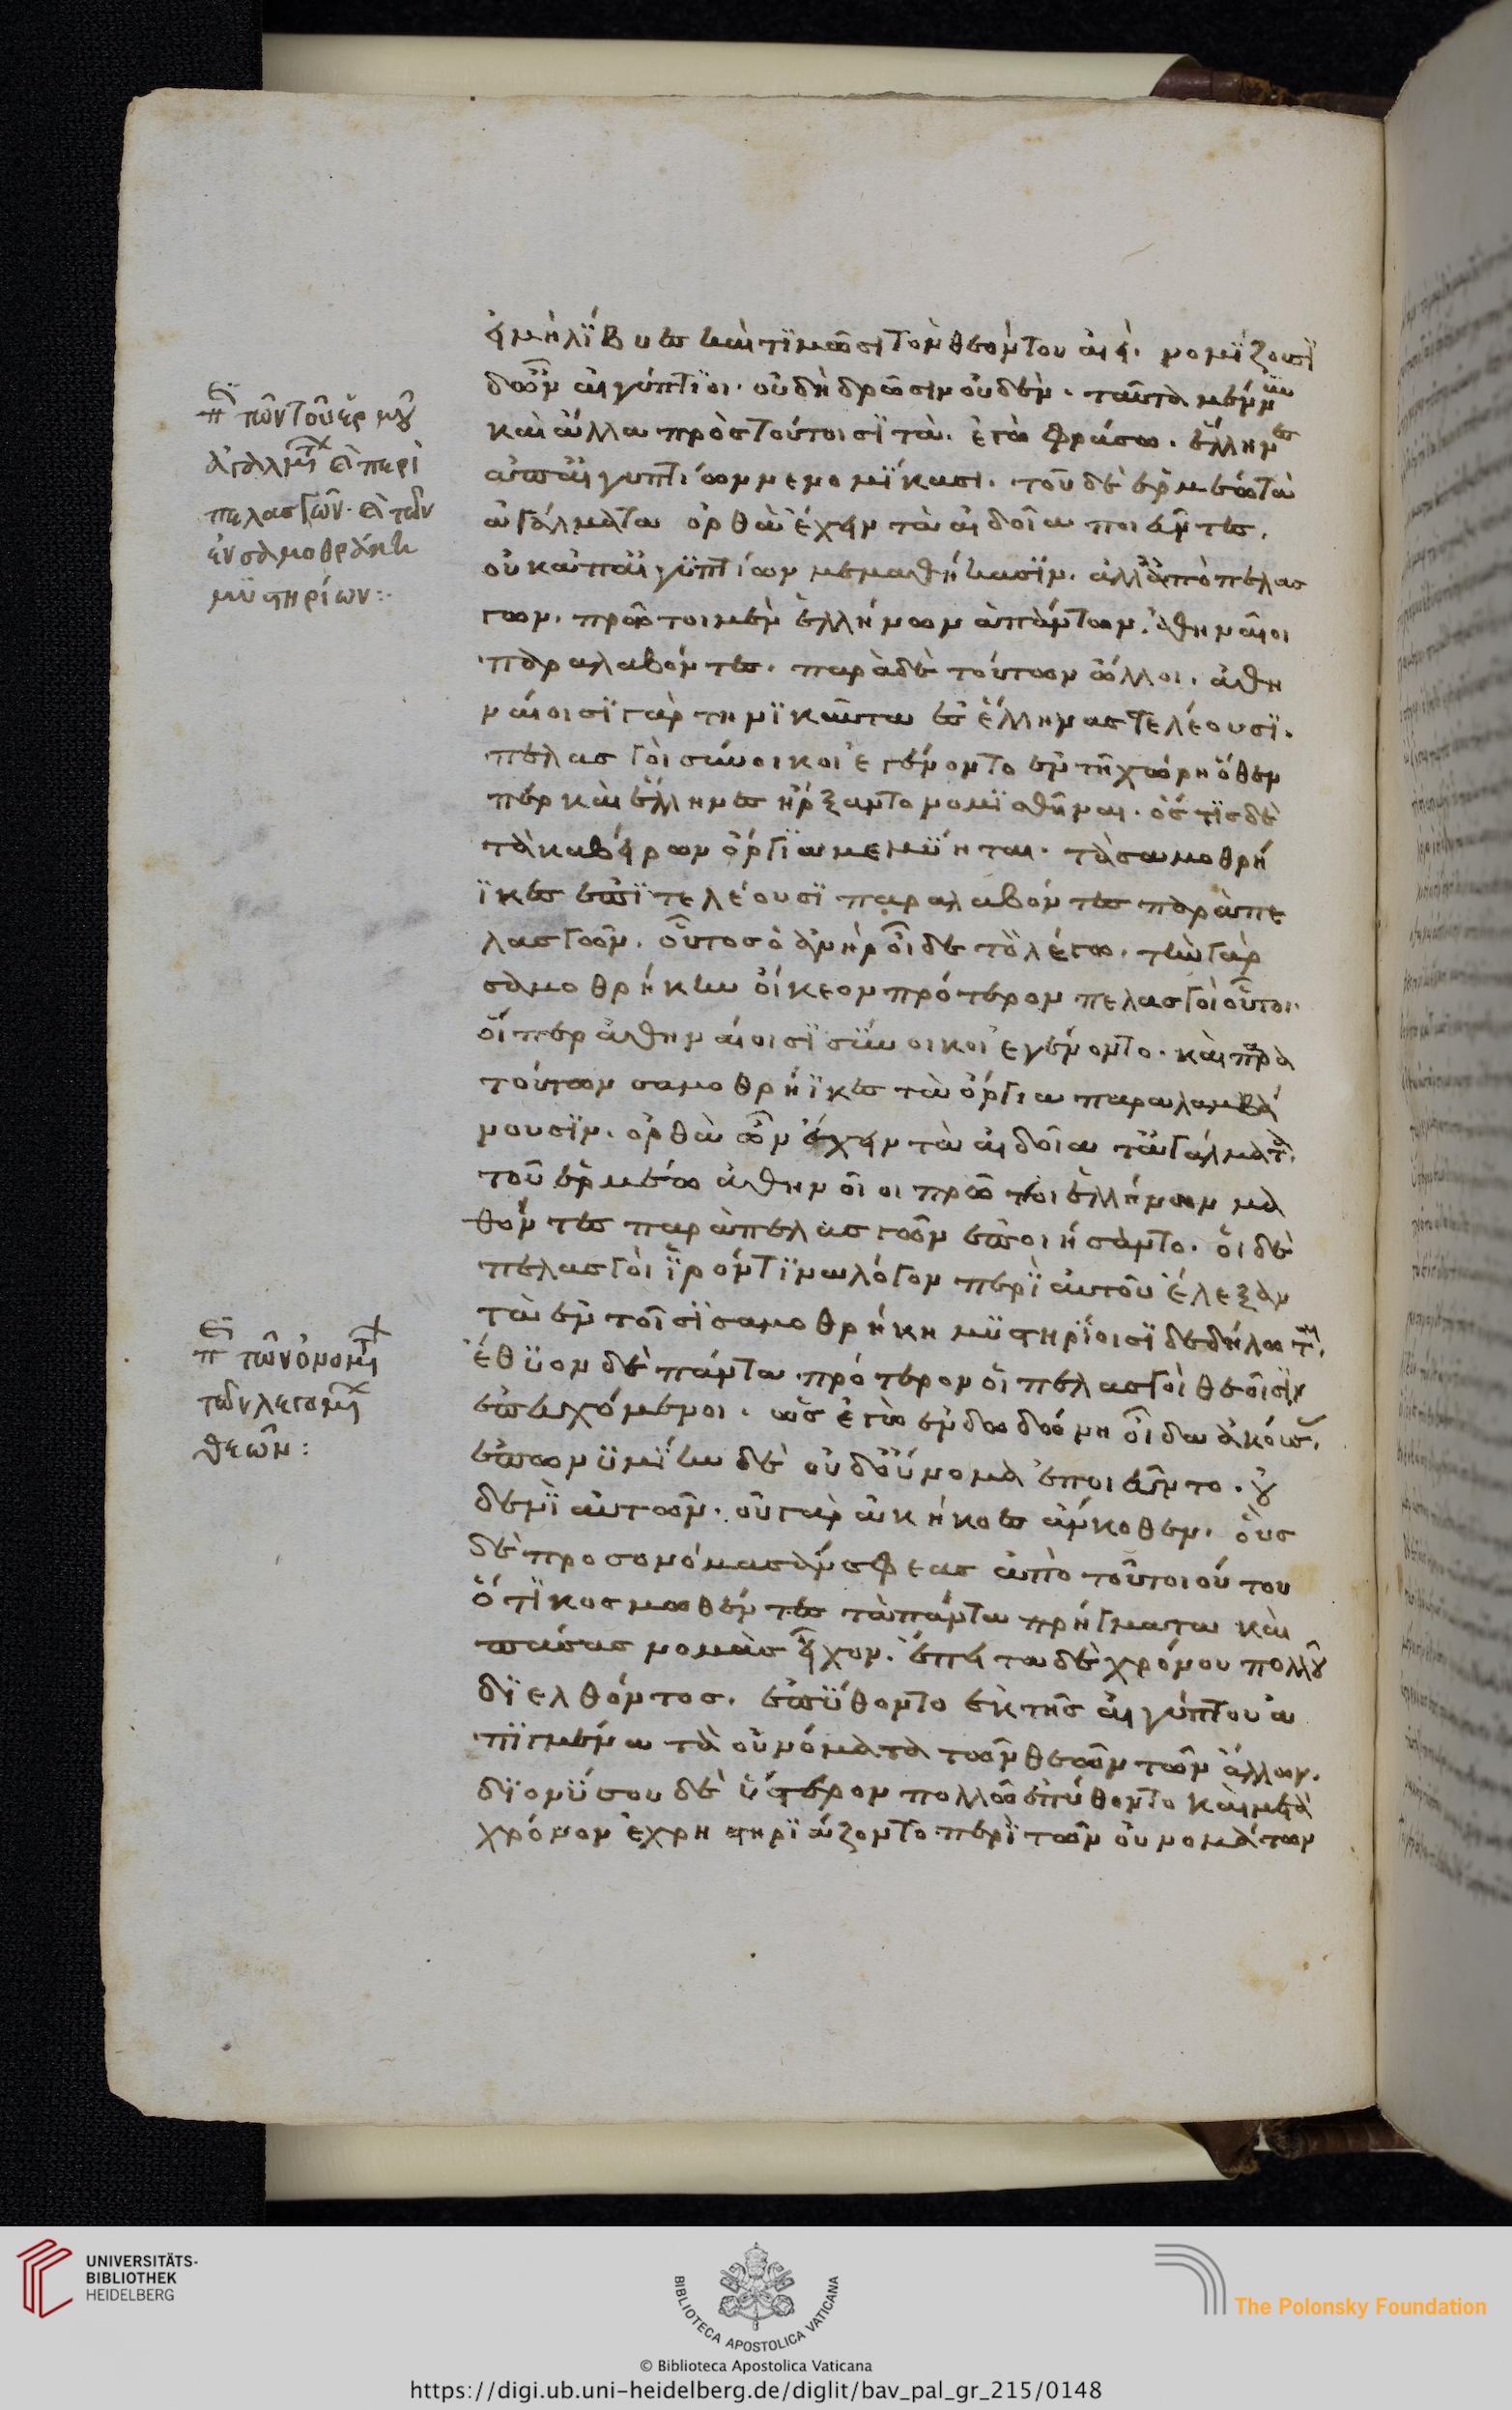 εἰ μὴ λίβυες καὶ τιμῶσι τὸν θεὸν τοῦ αἰεί. νομίζουσι
δ᾽ ὦν αἰγύπτιοι. οὐδ᾽ ἥρωσιν οὐδέν. ταῦτα μέν νυν
καὶ ἄλλα πρὸς τούτοισι τὰ ἐγὼ φράσω. ἕλληνες
ἀπ᾽ αἰγυπτίων νενομίκασι. τοῦ δὲ ἑρμέω τὰ
ἀγάλματα ὀρθὰ ἔχειν τὰ αἰδοῖα ποιεῦντες.
οὐκ ἀπ᾽ αἰγυπτίων μεμαθήκασιν. ἀλλ᾽ ἀπὸ πελασ
γῶν. πρῶτοι μὲν ἑλλήνων ἁπάντων. ἀθηναῖοι
παραλαβόντες. παρὰ δὲ τούτων ὧλλοι. ἀθη
ναίοισι γὰρ τηνικαῦτα ἐς ἕλληνας τελέουσι.
πελασγοὶ σύνοικοι ἐγένοντο ἐν τῇ χώρῃ ὅθεν
περ καὶ ἕλληνες ἤρξαντο νομισθῆναι. ὅστις δὲ
τὰ καβείρων ὄργια μεμύηται. τὰ σαμοθρή
ϊκες ἐπιτελέουσι παραλαβόντες παρὰ πε
λασγῶν. οὗτος ὁ ἀνὴρ οἶδε τὸ λέγω. τὴν γὰρ
σαμοθρήκην οἴκεον πρότερον πελασγοὶ οὗτοι.
οἵπερ ἀθηναίοισι σύνοικοι ἐγένοντο. καὶ παρὰ
τούτων σαμοθρήϊκες τὰ ὄργια παραλαμβά
νουσιν. ὀρθὰ ὦν ἔχειν τὰ αἰδοῖα τἀγάλματα
τοῦ ἑρμέω ἀθηναῖοι πρῶτοι ἑλλήνων μα
θόντες παρὰ πελασγῶν ἐποιήσαντο. οἱ δὲ
πελασγοὶ ἱρόν τινα λόγον περὶ αὐτοῦ ἔλεξαν
τὰ ἐν τοῖσι σαμοθρήκη μυστηρίοισι δεδήλωται.
ἔθυον δὲ πάντα πρότερον οἱ πελασγοὶ θεοῖσιν
ἐπευχόμενοι. ὡς ἐγὼ ἐν δωδώνη οἶδα ἀκούσας.
ἐπωνυμίην δὲ οὐδ᾽ οὔνομα ἐποιεῦντο. οὐ
δενὶ αὐτῶν. οὐ γὰρ ἀκηκόεσάν κοθεν. θεοὺς
δὲ προσονόμασάν σφεας ἀπὸ τοῦ τοιούτου
ὅτι κόσμω θέντες τὰ πάντα πρήγματα καὶ
πάσας νομὰς εἶχον. ἔπειτα δὲ χρόνου πολλοῦ
διελθόντος. ἐπύθοντο ἐκ τῆς αἰγύπτου ἀ
πιγμένα τὰ οὐνόματα τῶν θεῶν τῶν ἄλλων.
διονύσου δὲ ὕστερον πολλῶ ἐπύθοντο καὶ μετὰ
χρόνον ἐχρηστηριάζοντο περὶ τῶν οὐνομάτων
περὶ τῶν τοῦ ἑρμοῦ
ἀγαλμάτων καὶ περὶ
πελασγῶν. καὶ τῶν
ἐν σαμοθράκη
μυστηρίων:
περὶ τῶν ὀνομάτων
τῶν λεγομένων
θεῶν:
UNIVERSITÄTS-
BIBLIOTHEK
HEIDELBERG
BIBLIOTECA APOSTOLICA VATICANA
The Polonsky Foundation
© Biblioteca Apostolica Vaticana
https://digi.ub.uni-heidelberg.de/diglit/bav_pal_gr_215/0148